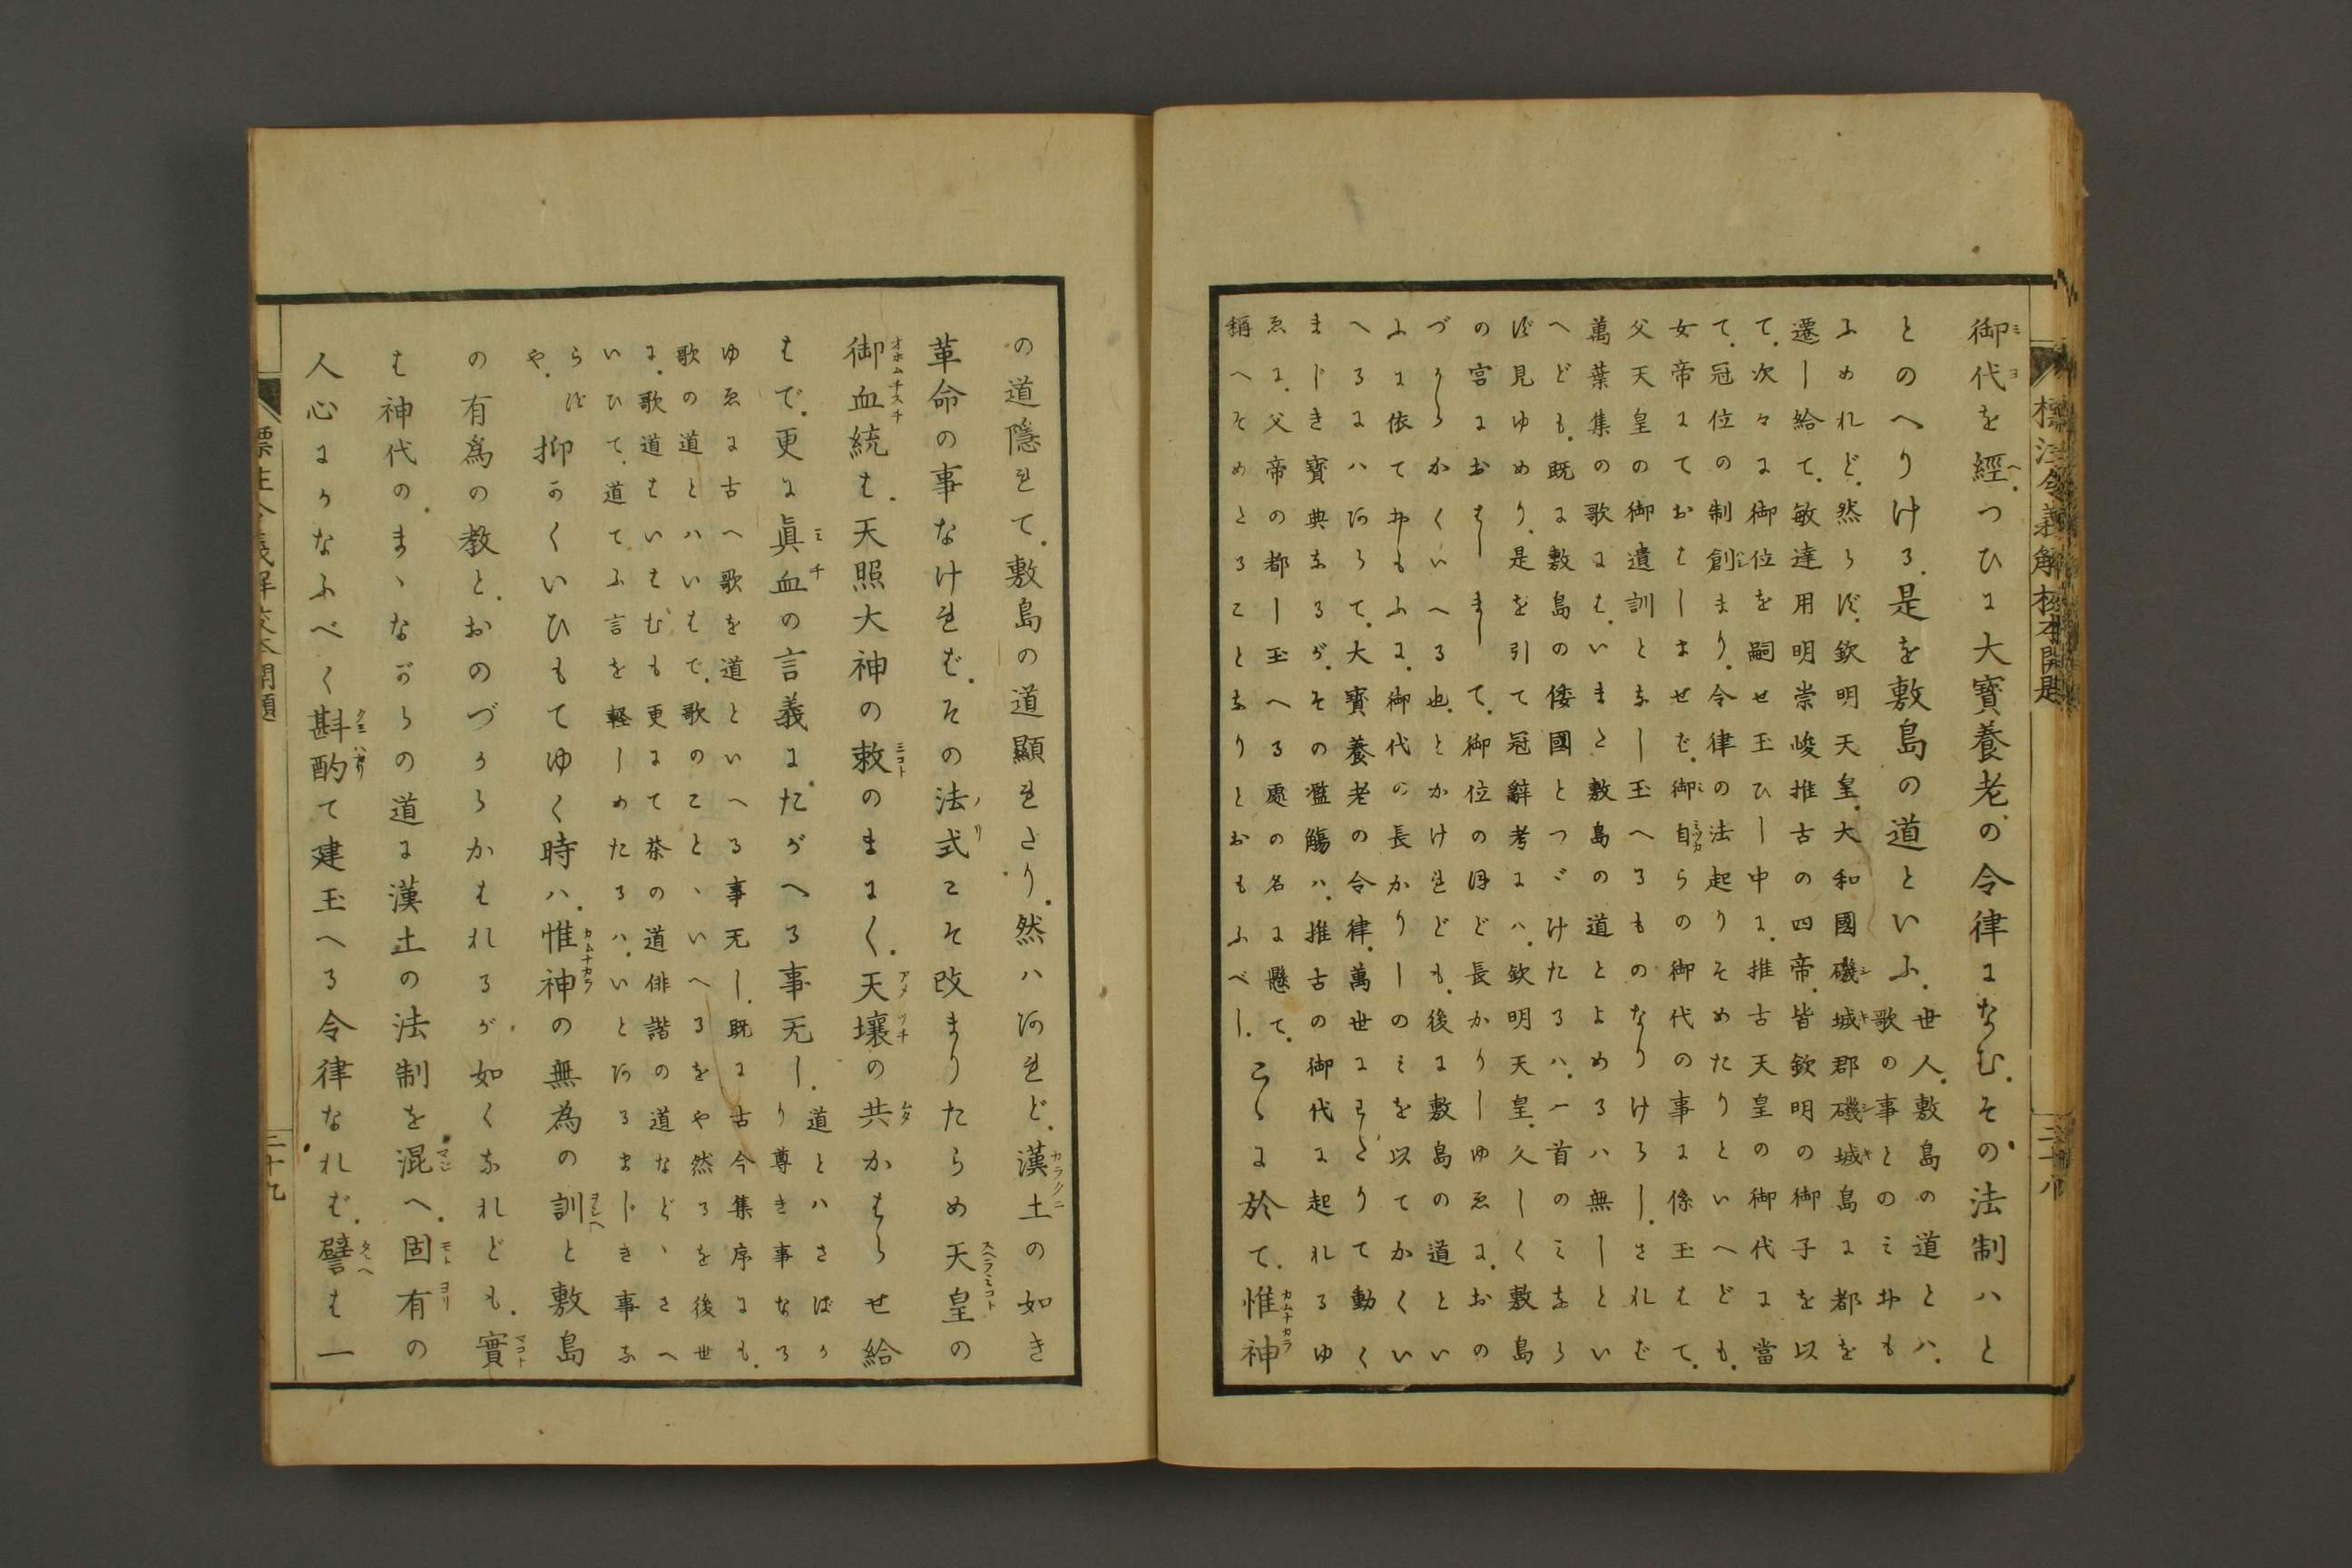 標注令義解校本開題
二十八
御代を經。つひに大寶養老の令律になむ。その法制ハとゝ
とのへりける。是を敷島の道といふ。世人。敷島の道とハ。
歌の事とのミおも
ふめれど。然らず。欽明天皇。大和國磯城郡磯城島に都を
遷し給て。敏達用明崇峻推古の四帝。皆欽明の御子を以
て。次々に御位を嗣せ玉ひし中に。推古天皇の御代に當
て。冠位の制創まり。今律の法起りそめたりといへども。
女帝にておはしませば。御自らの御代の事に係玉はて。
父天皇の御遺訓となし玉へるものなりけらし。されば
萬葉集の歌には。いまだ敷島の道とよめるハ無しとい
へども。既に敷島の倭國とつゞけたるハ。一首のミなら
ず見ゆめり。是を引て冠辭考にハ。欽明天皇。久しく敷島
の宮におはしまして。御位のほど長かりしゆゑに。おの
づからかくいへる也。とかけれども。後に敷島の道とい
ふに依ておもふに。御代の長かりしのミを以てかくい
へるにハあらて。大寶養老の令律。萬世にわたりて動く
まじき寶典なるが。その濫觴ハ。推古の御代に起れるゆ
ゑに。父帝の都し玉へる處の名に懸て。
稱へそめたることなりとおもふべし。こゝに於て。惟神
の道隱れて。敷島の道顯れたり。然ハあれど。漢土の如き
革命の事なければ。その法式こそ改まりたらめ天皇の
御血統は。天照大神の敕のまにく。天壤の共かはらせ給
はで。更に眞血の言義に。たがへる事无し。道とハさばか
り尊き事なる
ゆゑに古へ歌を道といへる事无し。既に古今集序にも。
歌の道とハいはで。歌のことゝいへるをや然るを後世
に。歌道はいはむも更にて茶の道俳諧の道などゝさへ
いひて。道てふ言を軽しめたるハ。いとあるまじき事な
らず
や。抑かくいひもてゆく時ハ。惟神の無為の訓と敷島
の有爲の教と。おのづからかはれるが如くなれども。實
は神代の。まゝながらの道に漢土の法制を混へ。固有の
人心にかなふべく斟酌て建玉へる令律なれば。譬は一
標注令義解校本開題
二十九